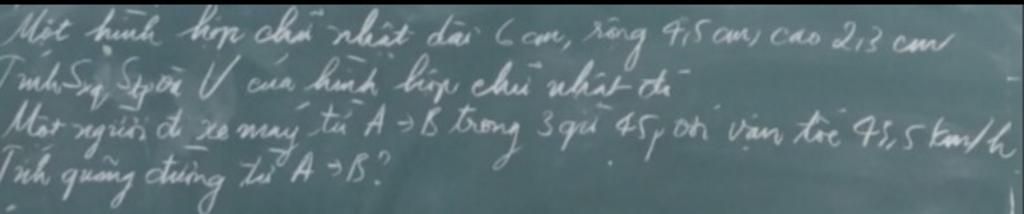 Một hình hộp chữ nhật dài 6 cm, rộng 4,5 cm, cao 2,3 cm
Tính Sxq, Stp và V của hình hộp chữ nhật đó
Một người đi xe máy từ A → B trong 3 giờ 45p với vận tốc 43,5 km/h
Tính quãng đường từ A → B?